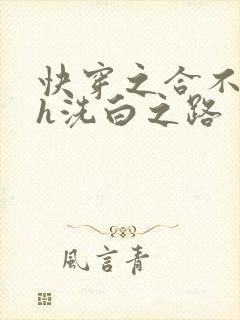 快穿之合不
h洗白之路
風言青